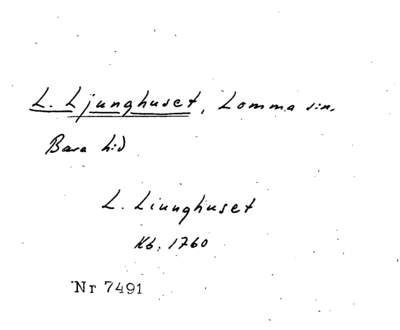 L. Ljunghuset, Lomma sn.
Bara hd
L. Liunghuset
Kb. 1760
Nr 7491